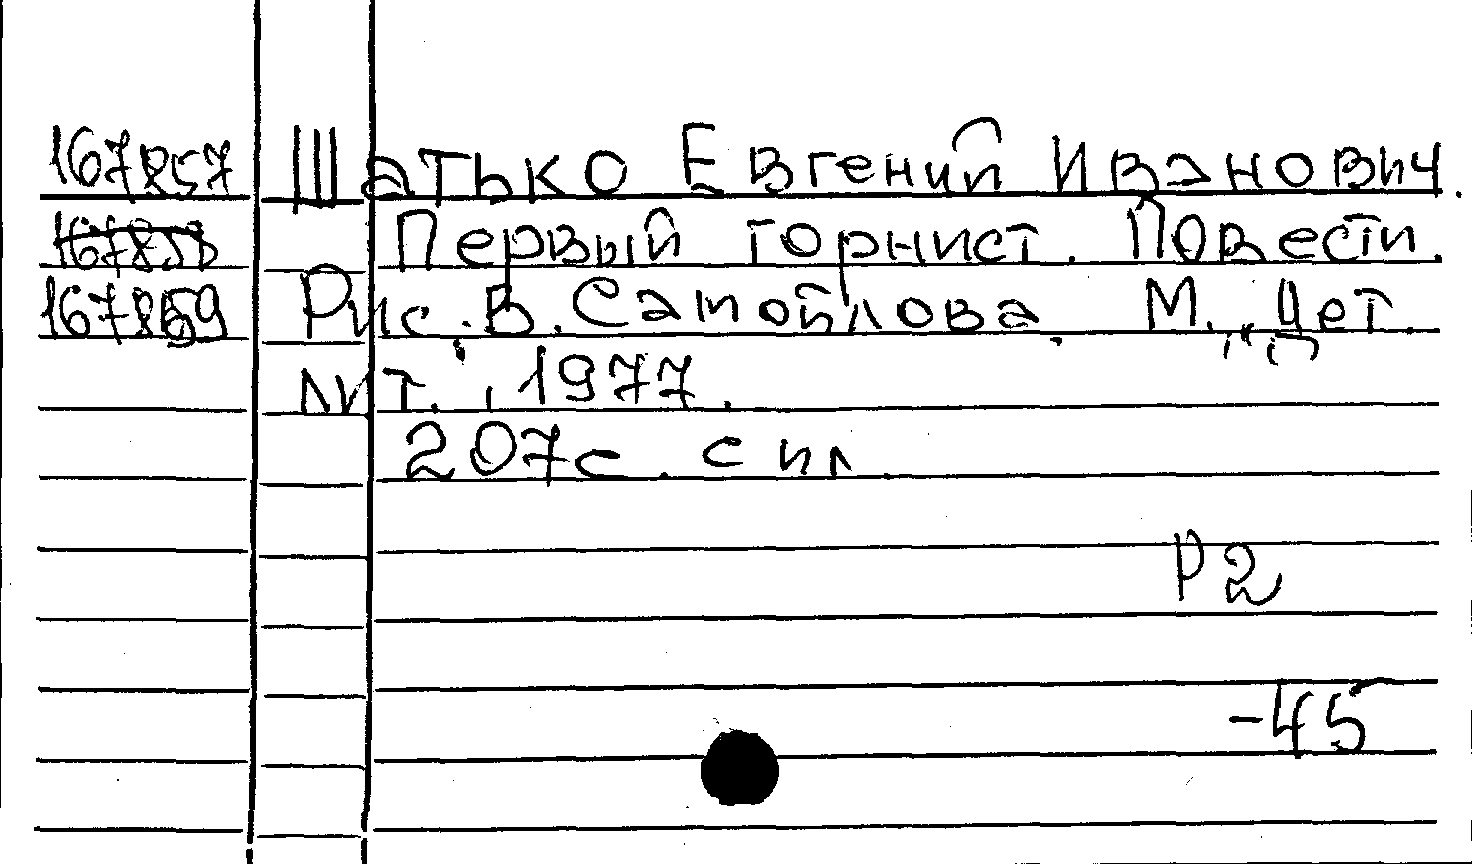 167857 Шатько Евгений Иванович.
167858 Первый горнист. Повести.
167859 Рис. В. Самойлова. М., "Дет.
лит.", 1977.
207с. с ил.
Р2
-45